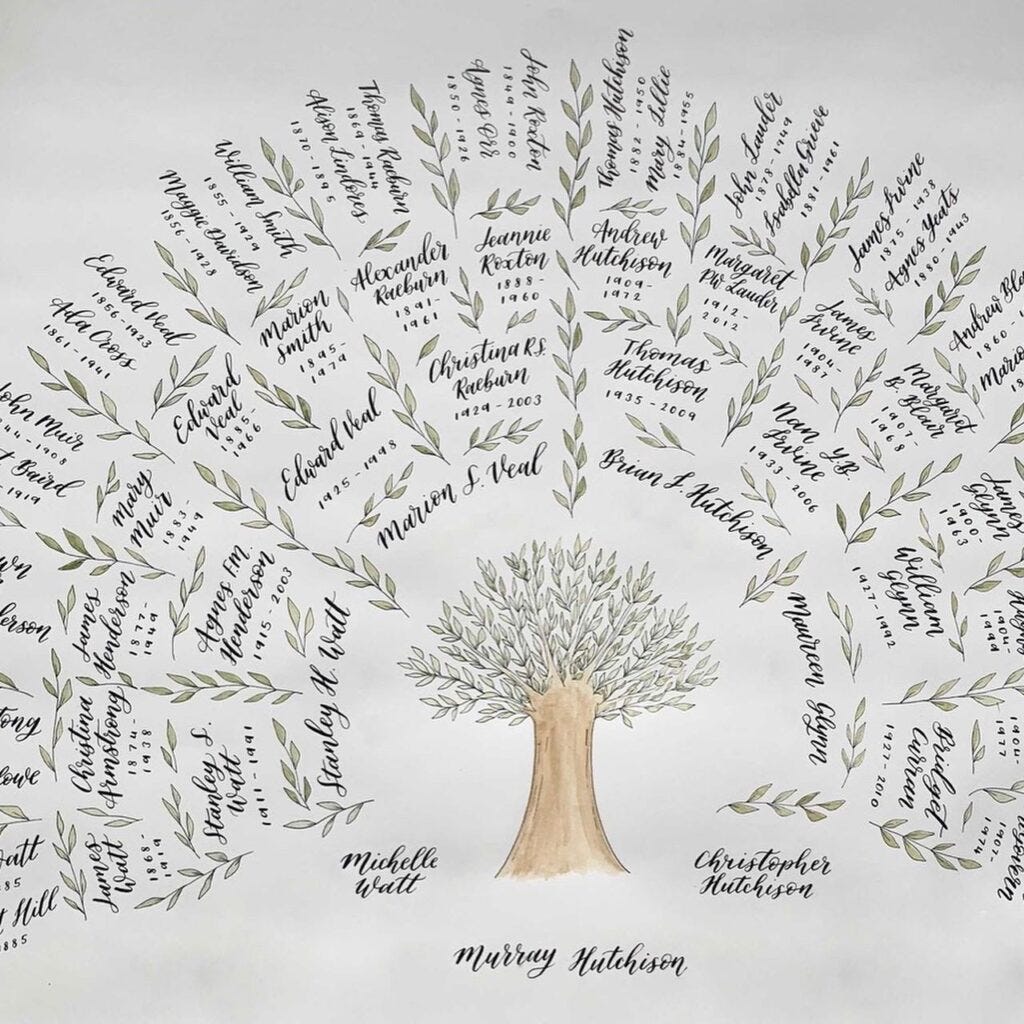 Thomas Hutchison
1882 - 1950
Mary Lillie
1884 - 1955
John Roxton
1849 - 1900
Agnes Orr
1850 - 1926
Thomas Raeburn
1869 - 1944
Alison Lindores
1870 - 1895
John Lauder
1878 - 1949
Isabella Grieve
1881 - 1961
William Smith
1855 - 1929
Maggie Davidson
1856 - 1928
James Irvine
1875 - 1938
Agnes Yeats
1880 - 1943
Edward Veal
1856 - 1923
Ada Cross
1861 - 1941
Andrew
1860 -
John Muir
1908
Baird
1919
Jeannie
Roxton
1888 -
1960
Andrew
Hutchison
1909 -
1972
Alexander
Raeburn
1891 -
1961
Margaret
PW Lauder
1912 -
2012
Marion
Smith
1895 -
1979
James
Irvine
1904 -
1987
Edward
Veal
1885 -
1966
Margaret
B. Blair
1907 -
1968
Mary
Muir
1883 -
1949
James
Glynn
1900 -
1963
James
Henderson
1877 -
1949
Christina
Armstrong
1874 -
1938
James
Watt
1868 -
1919
Hill
1885
Christina R.S.
Raeburn
1929 - 2003
Thomas
Hutchison
1935 - 2009
Edward Veal
1925 - 1998
Nan Y.B.
Irvine
1933 - 2006
Agnes F.M.
Henderson
1915 - 2003
William
Glynn
1927 - 1992
Stanley S.
Watt
1911 - 1991
Bridget
Curran
1927 - 2010
1904 -
1977
1907 -
1974
Marion L. Veal
Brian L. Hutchison
Stanley H. Watt
Maureen Glynn
Michelle
Watt
Christopher
Hutchison
Murray Hutchison